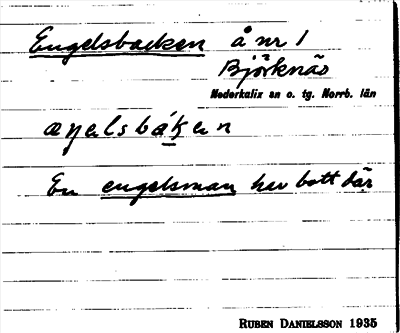 Engelsbacken å nr 1
Björknäs
Nederkalix sn o. tg. Norrb. län
æŋəlsbákən
En engelsman har bott där
RUBEN DANIELSSON 1935